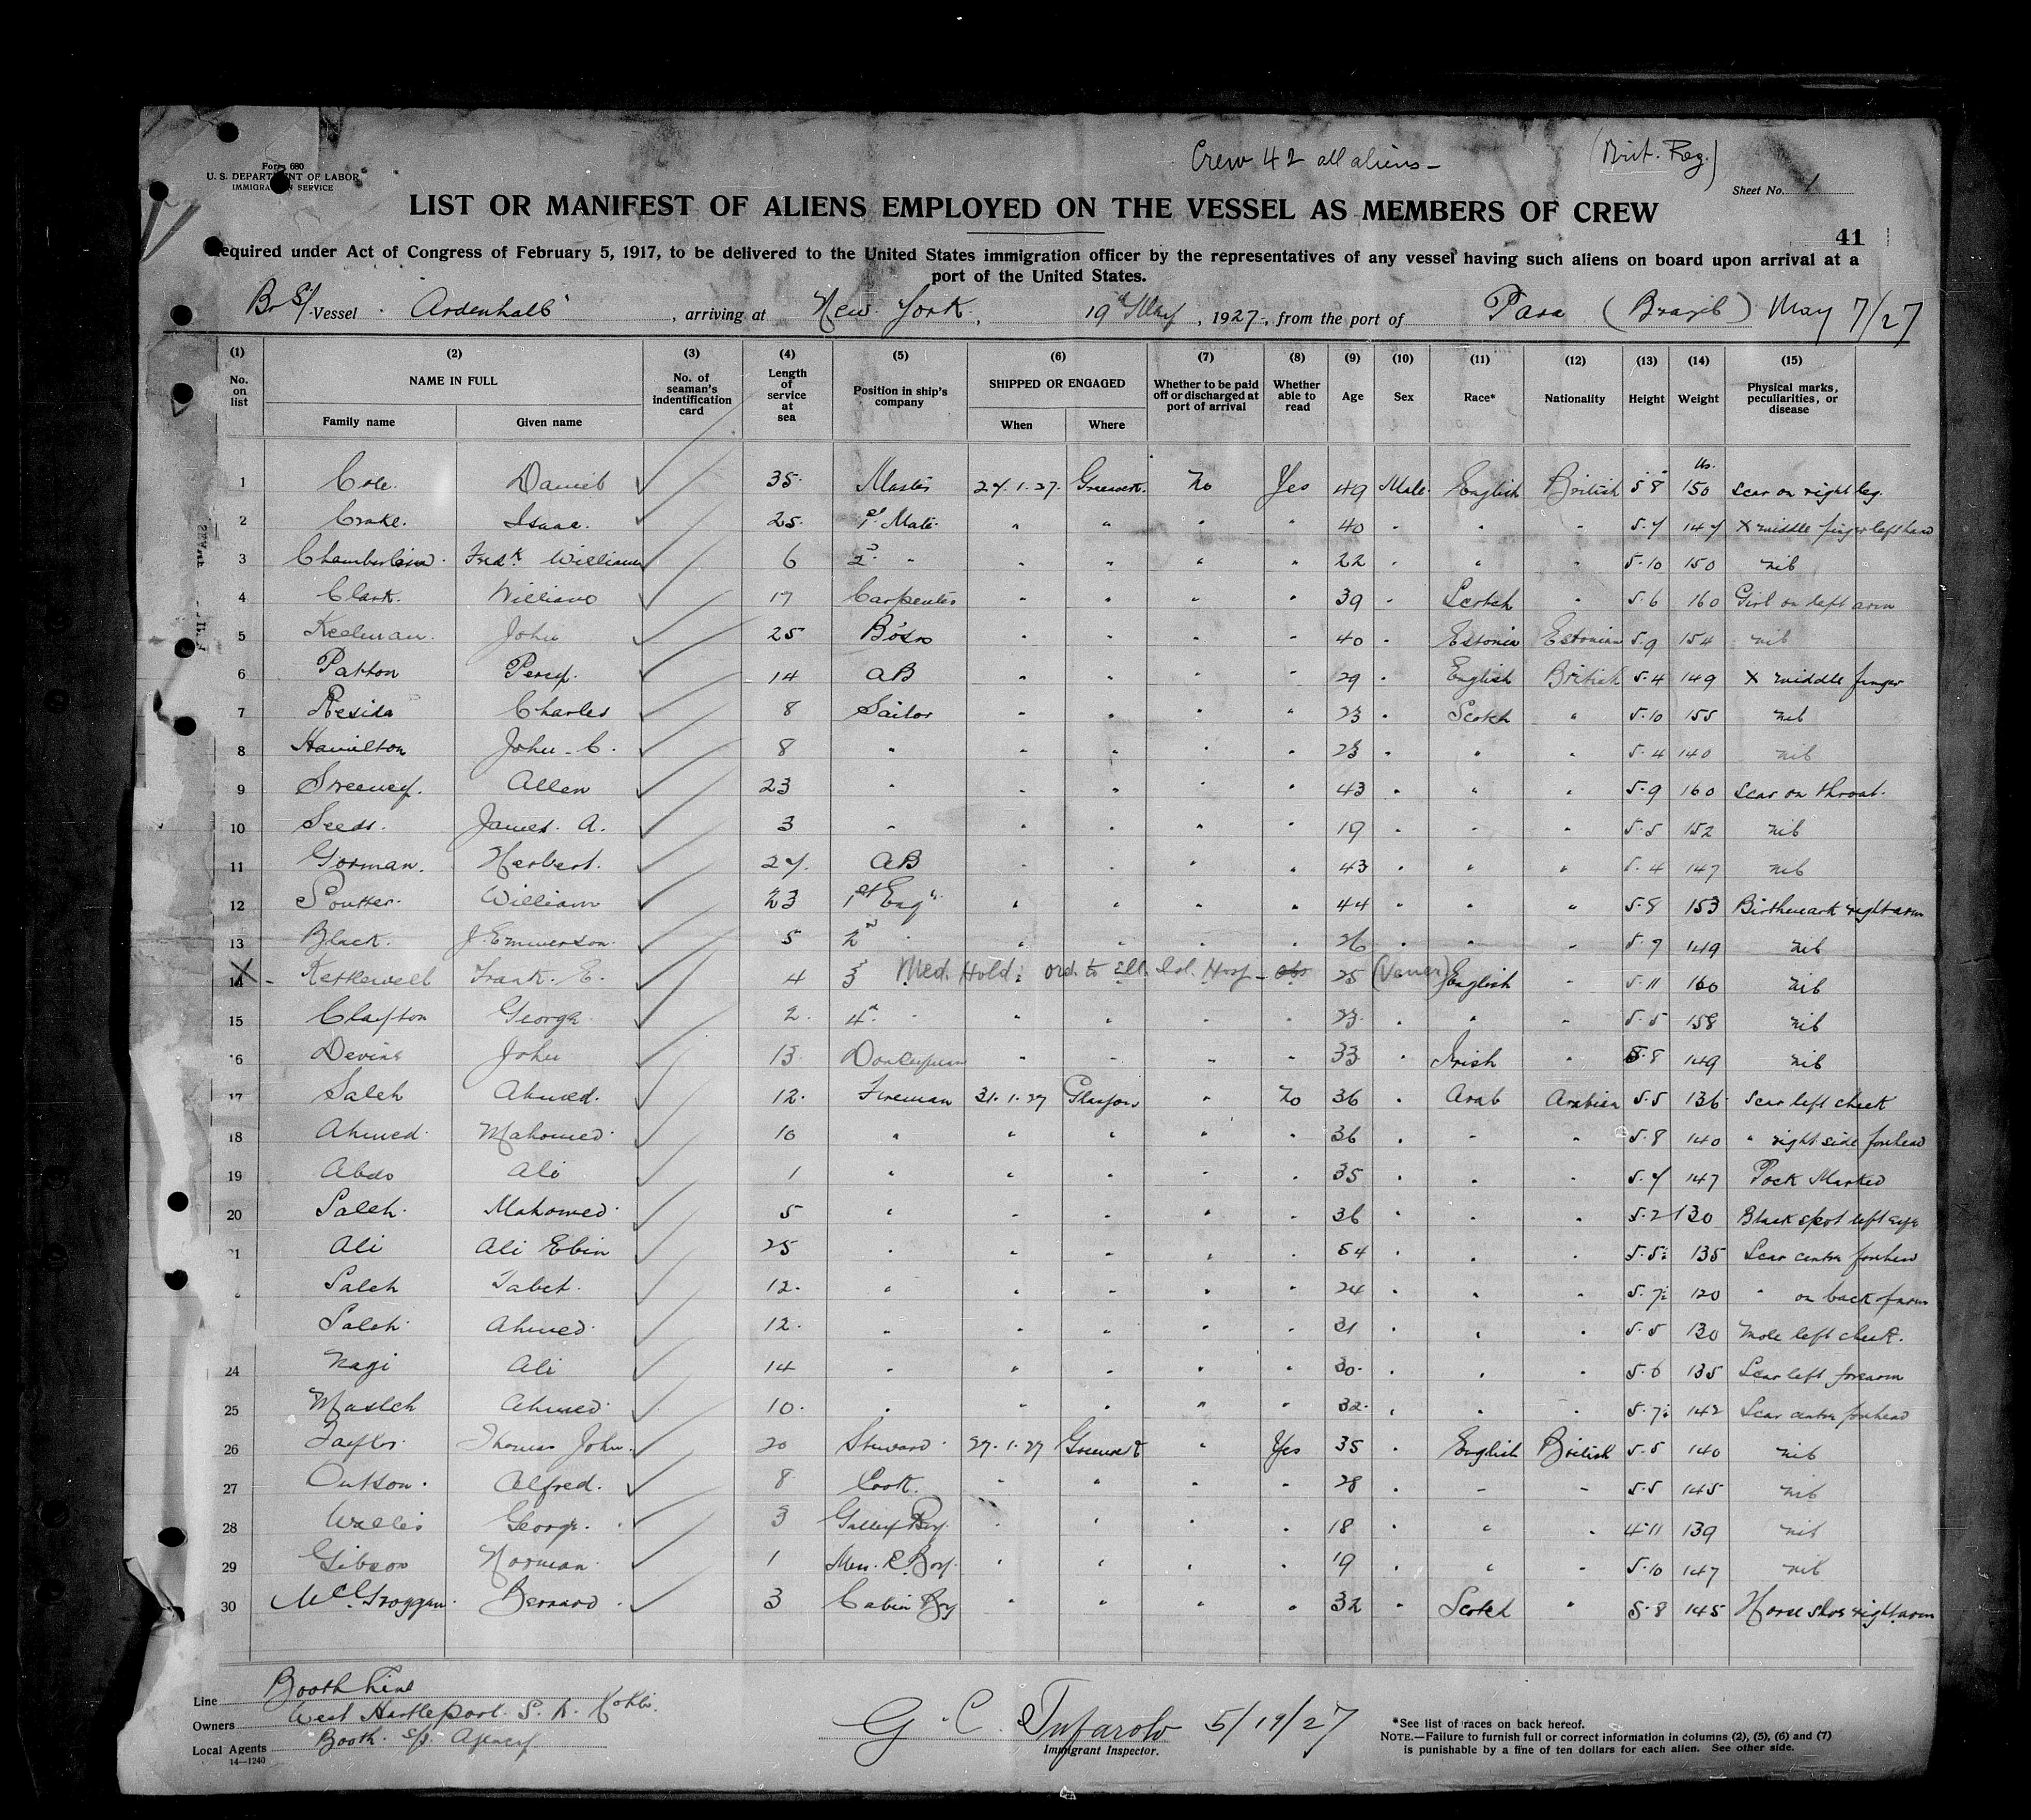 Crew 42 all aliens -
(Brit. Reg.)
Form 680
U. S. DEPARTMENT OF LABOR
IMMIGRATION SERVICE
Sheet No. 1
LIST OR MANIFEST OF ALIENS EMPLOYED ON THE VESSEL AS MEMBERS OF CREW
41
Required under Act of Congress of February 5, 1917, to be delivered to the United States immigration officer by the representatives of any vessel having such aliens on board upon arrival at a
port of the United States.
Br S/ Vessel "Ardenhall", arriving at New York, 19th May, 1927, from the port of Para (Brazil) May 7/27
(1) (2) (3) (4) (5) (6) (7) (8) (9) (10) (11) (12) (13) (14) (15)
No. on list NAME IN FULL Family name Given name No. of seaman's indentification card Length of service at sea Position in ship's company SHIPPED OR ENGAGED When Where Whether to be paid off or discharged at port of arrival Whether able to read Age Sex Race* Nationality Height Weight Physical marks, peculiarities, or disease
1 Cole. Daniel 35 Master 27.1.27 Greenock No Yes 49 Male English British 5 8 lbs. 150 Scar on right leg.
2 Crake. Isaac. 25 1st Mate " " " " 40 " " " 5.7 147 X middle finger left hand
3 Chamberlain Fredk. William 6 2nd " " " " " 22 " " " 5.10 150 nil
4 Clark. William 17 Carpenter " " " " 39 " Scotch " 5.6 160 Girl on left arm
5 Keelman. John 25 Bosn " " " " 40 " Estonia Estonian 5.9 154 nil
6 Patton Percy. 14 AB " " " " 29 " English British 5.4 149 X middle finger
7 Reside Charles 8 Sailor " " " " 23 " Scotch " 5.10 155 nil
8 Hamilton John. C. 8 " " " " " 23 " " " 5.4 140 nil
9 Sweeney. Allen 23 " " " " " 43 " " " 5.9 160 Scar on throat.
10 Seeds. James. A. 3 " " " " " 19 " " " 5.5 152 nil
11 Gorman. Herbert. 27 AB " " " " 43 " " " 5.4 147 nil
12 Soutter. William 23 1st Engr. " " " " 44 " " " 5.8 153 Birthmark right arm
13 Black. J. Emmerson. 5 2nd " " " " " 26 " " " 5.7 149 nil
14 Kettlewell Frank. E. 4 3rd Med. Hold: ord. to Ell. Isl. Hosp - obs 25 (Vener) English " 5.11 160 nil
15 Clayton George 2 4th " " " " " 23 " " " 5.5 158 nil
16 Devine John 13 Donkeyman " " " " 33 " Irish " 5.8 149 nil
17 Saleh Ahmed. 12 Fireman 31.1.27 Glasgow " No 36 " Arab Arabian 5.5 136 Scar left cheek
18 Ahmed Mahomed 10 " " " " " 36 " " " 5.8 140 " right side forehead
19 Abdo Ali 1 " " " " " 35 " " " 5.7 147 Pock Marked
20 Saleh Mahomed 5 " " " " " 36 " " " 5.2 130 Black spot left eye
21 Ali Ali Ebin 25 " " " " " 54 " " " 5.5½ 135 Scar centre forehead
Saleh Tabet. 12 " " " " " 24 " " " 5.7½ 120 " on back of arm
Saleh Ahmed 12 " " " " " 31 " " " 5.5 130 Mole left cheek.
24 Nagi Ali 14 " " " " " 30 " " " 5.6 135 Scar left forearm
25 Masleh Ahmed 10 " " " " " 32 " " " 5.7½ 142 Scar centre forehead
26 Taylor. Thomas John. 20 Steward 27.1.27 Greenock " Yes 35 " English British 5.5 140 nil
27 Outson. Alfred. 8 Cook. " " " " 28 " " " 5.5 145 nil
28 Wallis George. 3 Galley Boy. " " " " 18 " " " 4.11 139 nil
29 Gibson Norman 1 Mess. R. Boy. " " " " 19 " " " 5.10 147 nil
30 McGroggan. Bernard. 3 Cabin Boy " " " " 32 " Scotch " 5.8 145 Horse shoe right arm
Line Booth Line
Owners West Hartlepool S. N. Co
Local Agents Booth S/S. Agency
14—1240
G. C. Tufarolo 5/19/27
Immigrant Inspector.
*See list of races on back hereof.
NOTE.—Failure to furnish full or correct information in columns (2), (5), (6) and (7)
is punishable by a fine of ten dollars for each alien. See other side.